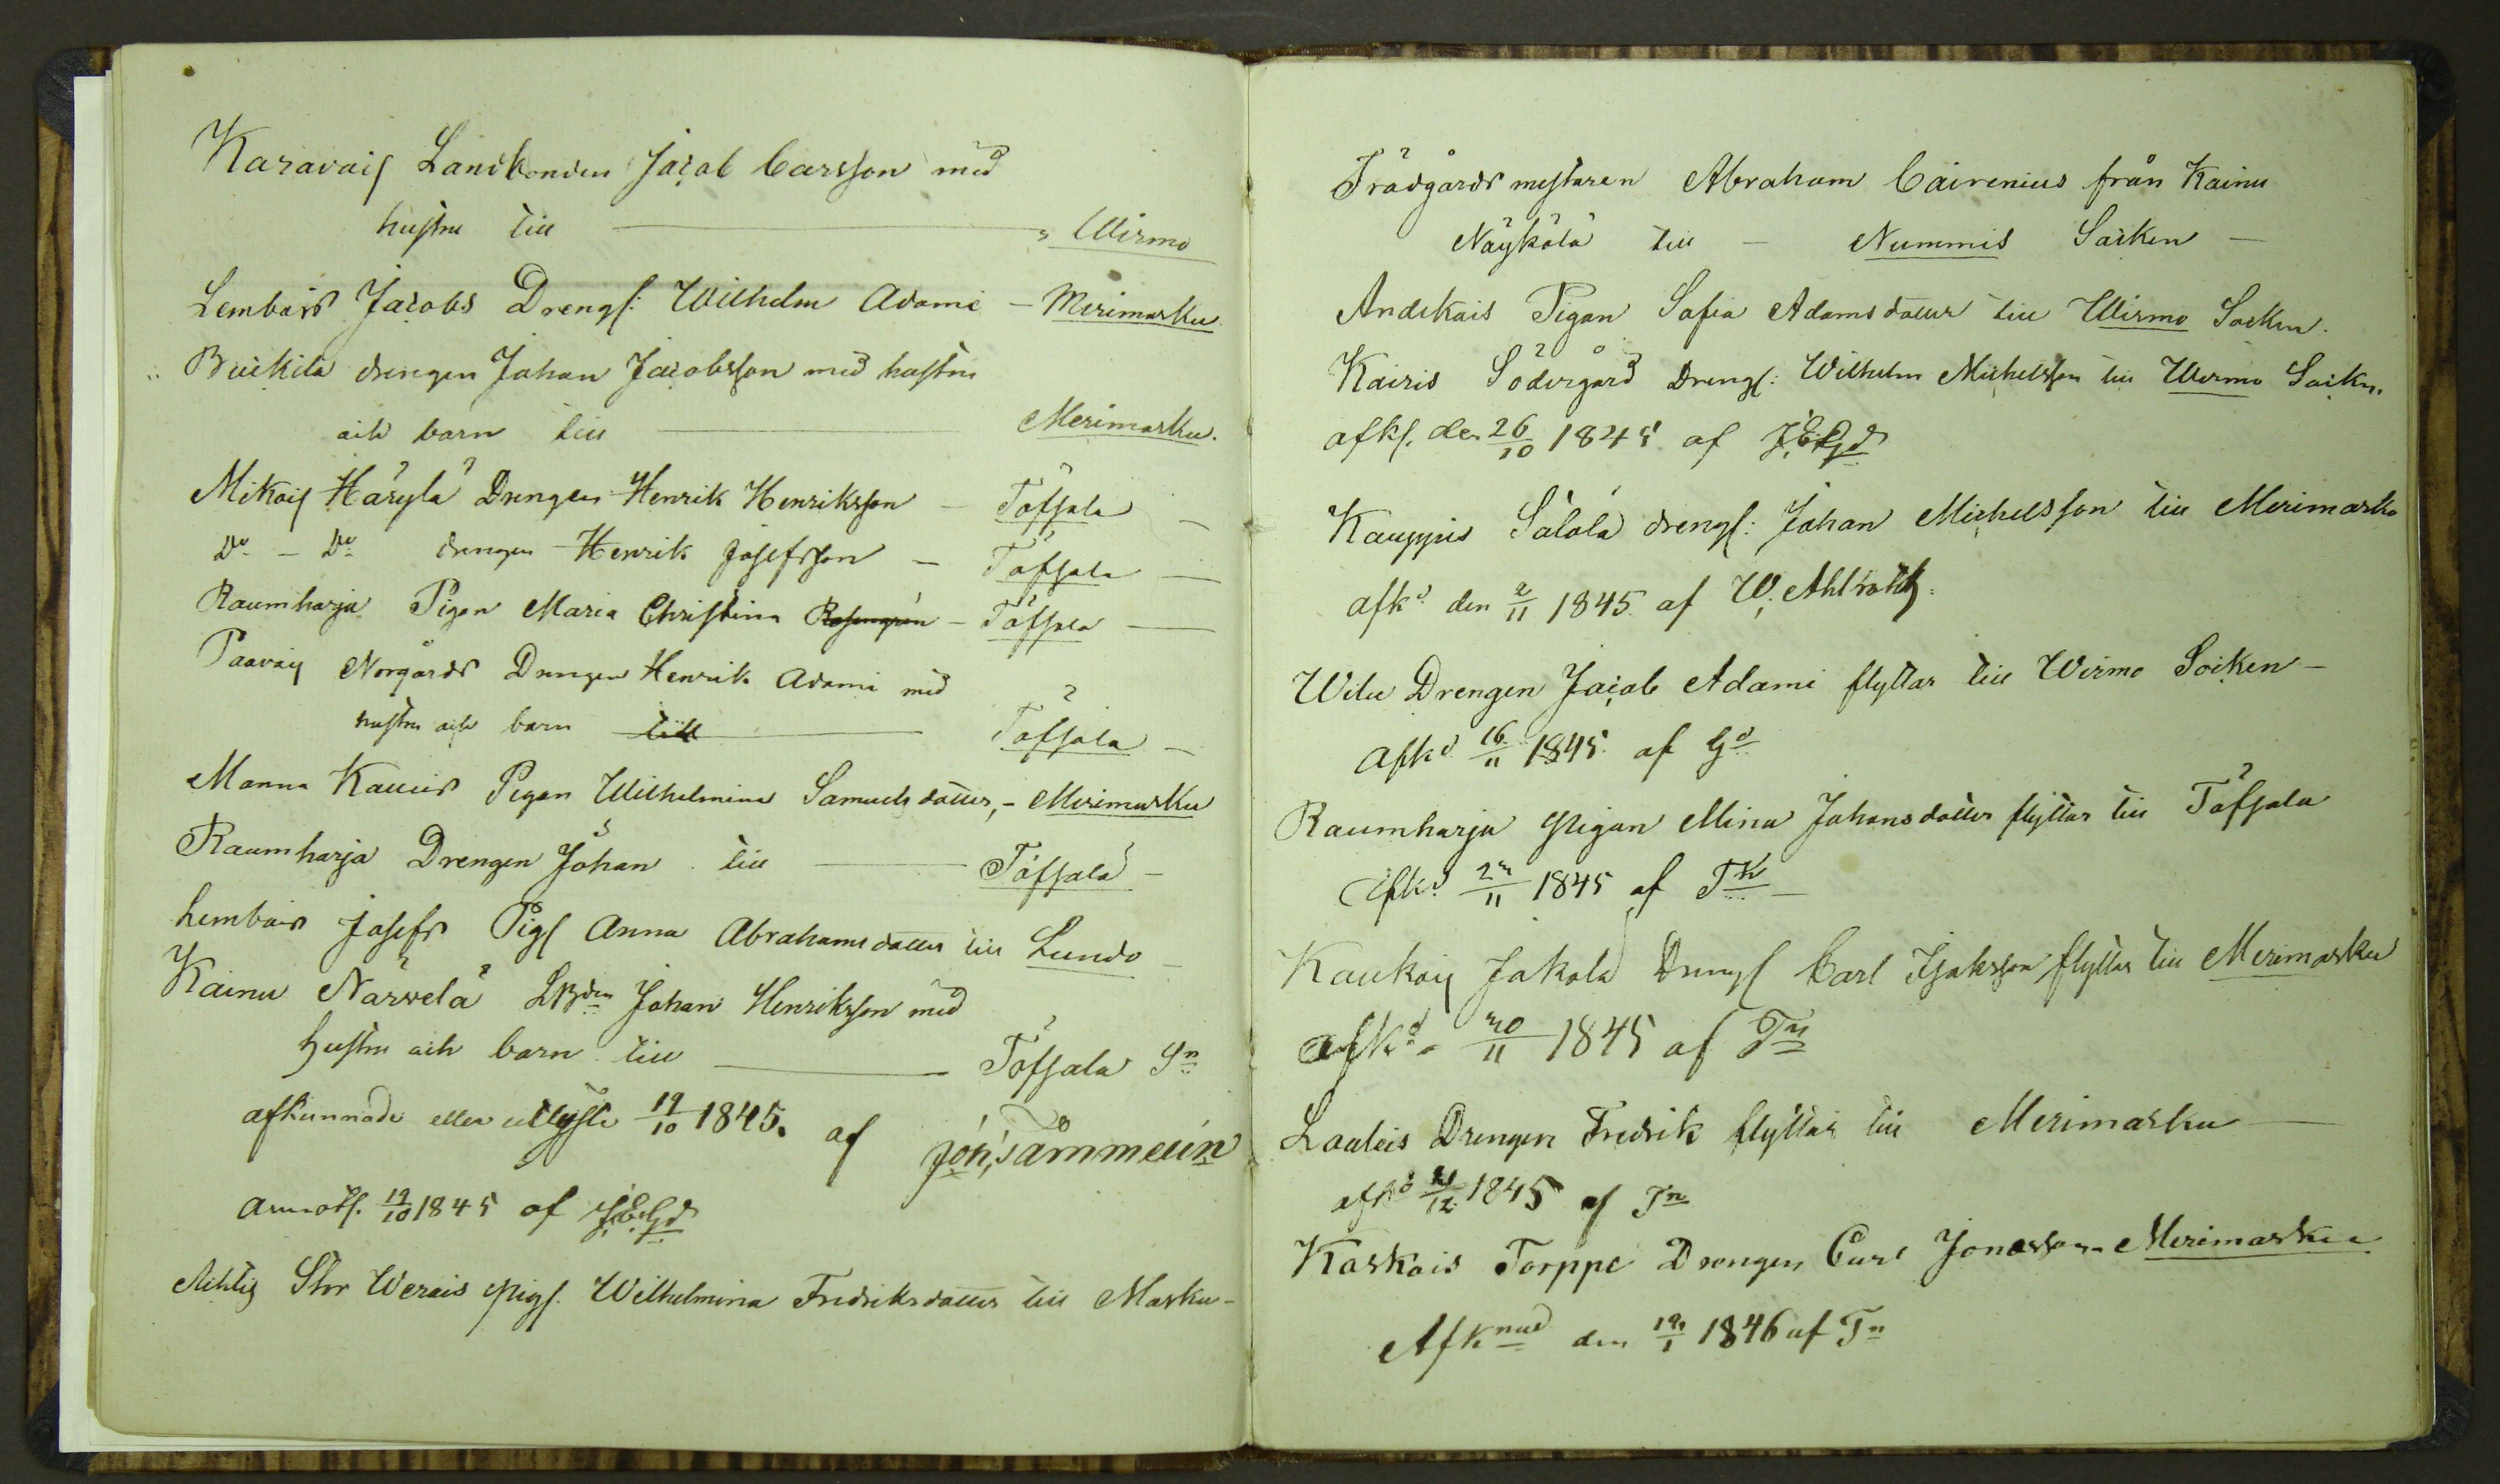 Karavais Landbonden Jacob Carsson med
hustru till Wirmo
Lembois Jacobs Drengs: Wilhelm Adami - Merimasku
drengen Johan Jacobsson med hustru
och barn till Merimasku.
Mikois Härylä Drengen Henrik Henriksson - Töfsala -
Do - Do drengen Henrik Josefsson - Töfsala -
Raumharja Pigan Maria Christina Rosengren - Töfsala -
Paavais Norgårds Drengen Henrik Adami med
hustru och barn till Töfsala -
Manna Pigan Wilhelmina Samuelsdotter, - Merimasku
Raumharja Drengen Johan till Töfsala -
Lembois Josefs Pigs Anna Abrahamsdotter till Lundo -
Kainu Närvelä LBden Johan Henriksson med
hustru och barn till Töfsala Sn
afkunnade eller utlyste 19/10 1845. af Joh: Tammelin
19/10 1845 af
Stor Werais pigs. Wilhelmina Fredriksdotter till Masku -
Trädgårdsmestaren Abraham Cairenius från Kainu
Näykölä till - Nummis Socken -
Andikais Pigan Sofia Adamsdotter till Wirmo Socken.
Kairis Södergård Drengs: Wilhelm Michelsson till Wirmo Sockn.
afks. den 26/10 1845 af
Kauppis Sälölä drengs: Johan Michelsson till Merimasku
afkd den 2/11 1845 af W. Ahlroth.
Wilu Drengen Jacob Adami flyttar till Wirmo Socken -
Afkd 16/11 1845 af Gd
Raumharja pigan Mina Johansdotter flyttar till Töfsala
Afkd 23/11 1845 af Tn -
Kaukois Jakola Drengs Carl Isaksson flyttar till Merimasku
afkd - 30/11 1845 af Tn
Laulois Drengen Fredrik flyttar till Merimasku -
afkd 21/12 1845 af Tn
Koskois Torppe Drengen Carl Jonasson Merimasku
Afknad den 1846 af Tn